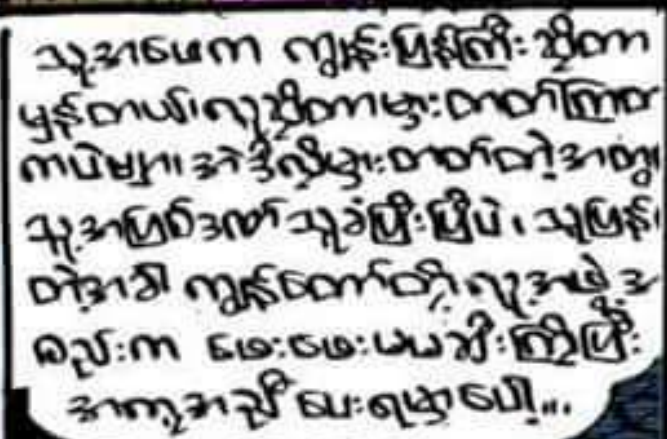 သူ့အဖေက ကျွန်းပြန်ကြီးဆိုတာ
မှန်တယ်၊လူဆိုတာမှားတတ်ကြတာ
ကပဲမျှော၊အဲဒီလိုမှားတတ်တဲ့အတွ
သူ့အပြစ်ဒဏ်သူခံပြီးပြီပဲ၊သူပြန်
တဲ့အခါ ကျွန်တော်တို့လူ့အဖွဲ့အ
စည်းက ဖေးဖေးမမသီးကြိုပြီး
အကူအညီပေးရမှာပေါ့...